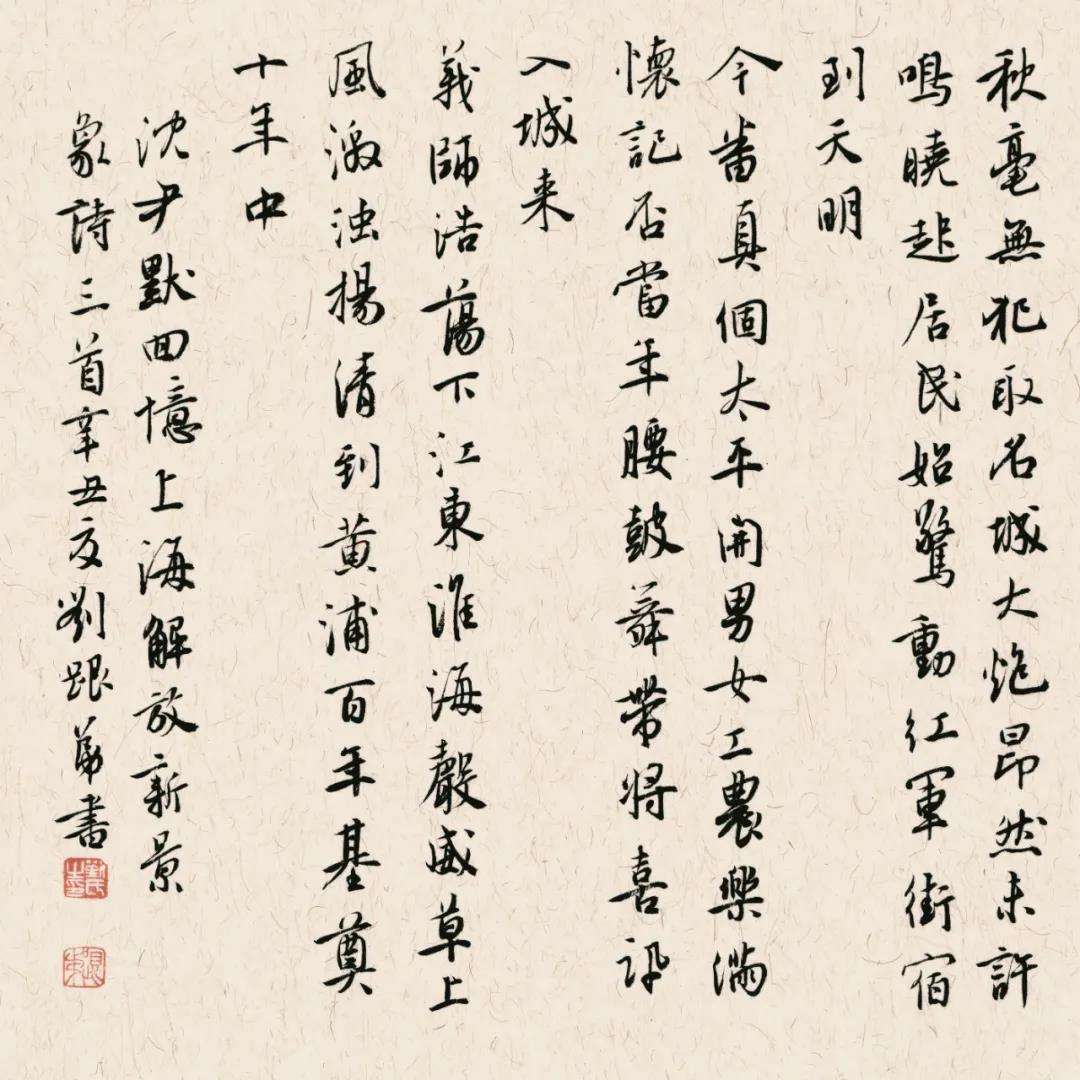 秋毫無犯取名城大炮昂然未許
鳴曉起居民始驚動紅軍街宿
到天明
今番真個太平開男女工農樂滿
懷記否當年腰鼓舞帶將喜訊
入城来
義師浩蕩下江東淮海聲威草上
風激浊揚清到黄浦百年基奠
十年中
沈尹默回憶上海解放新景
象詩三首辛丑夏劉跟弟書